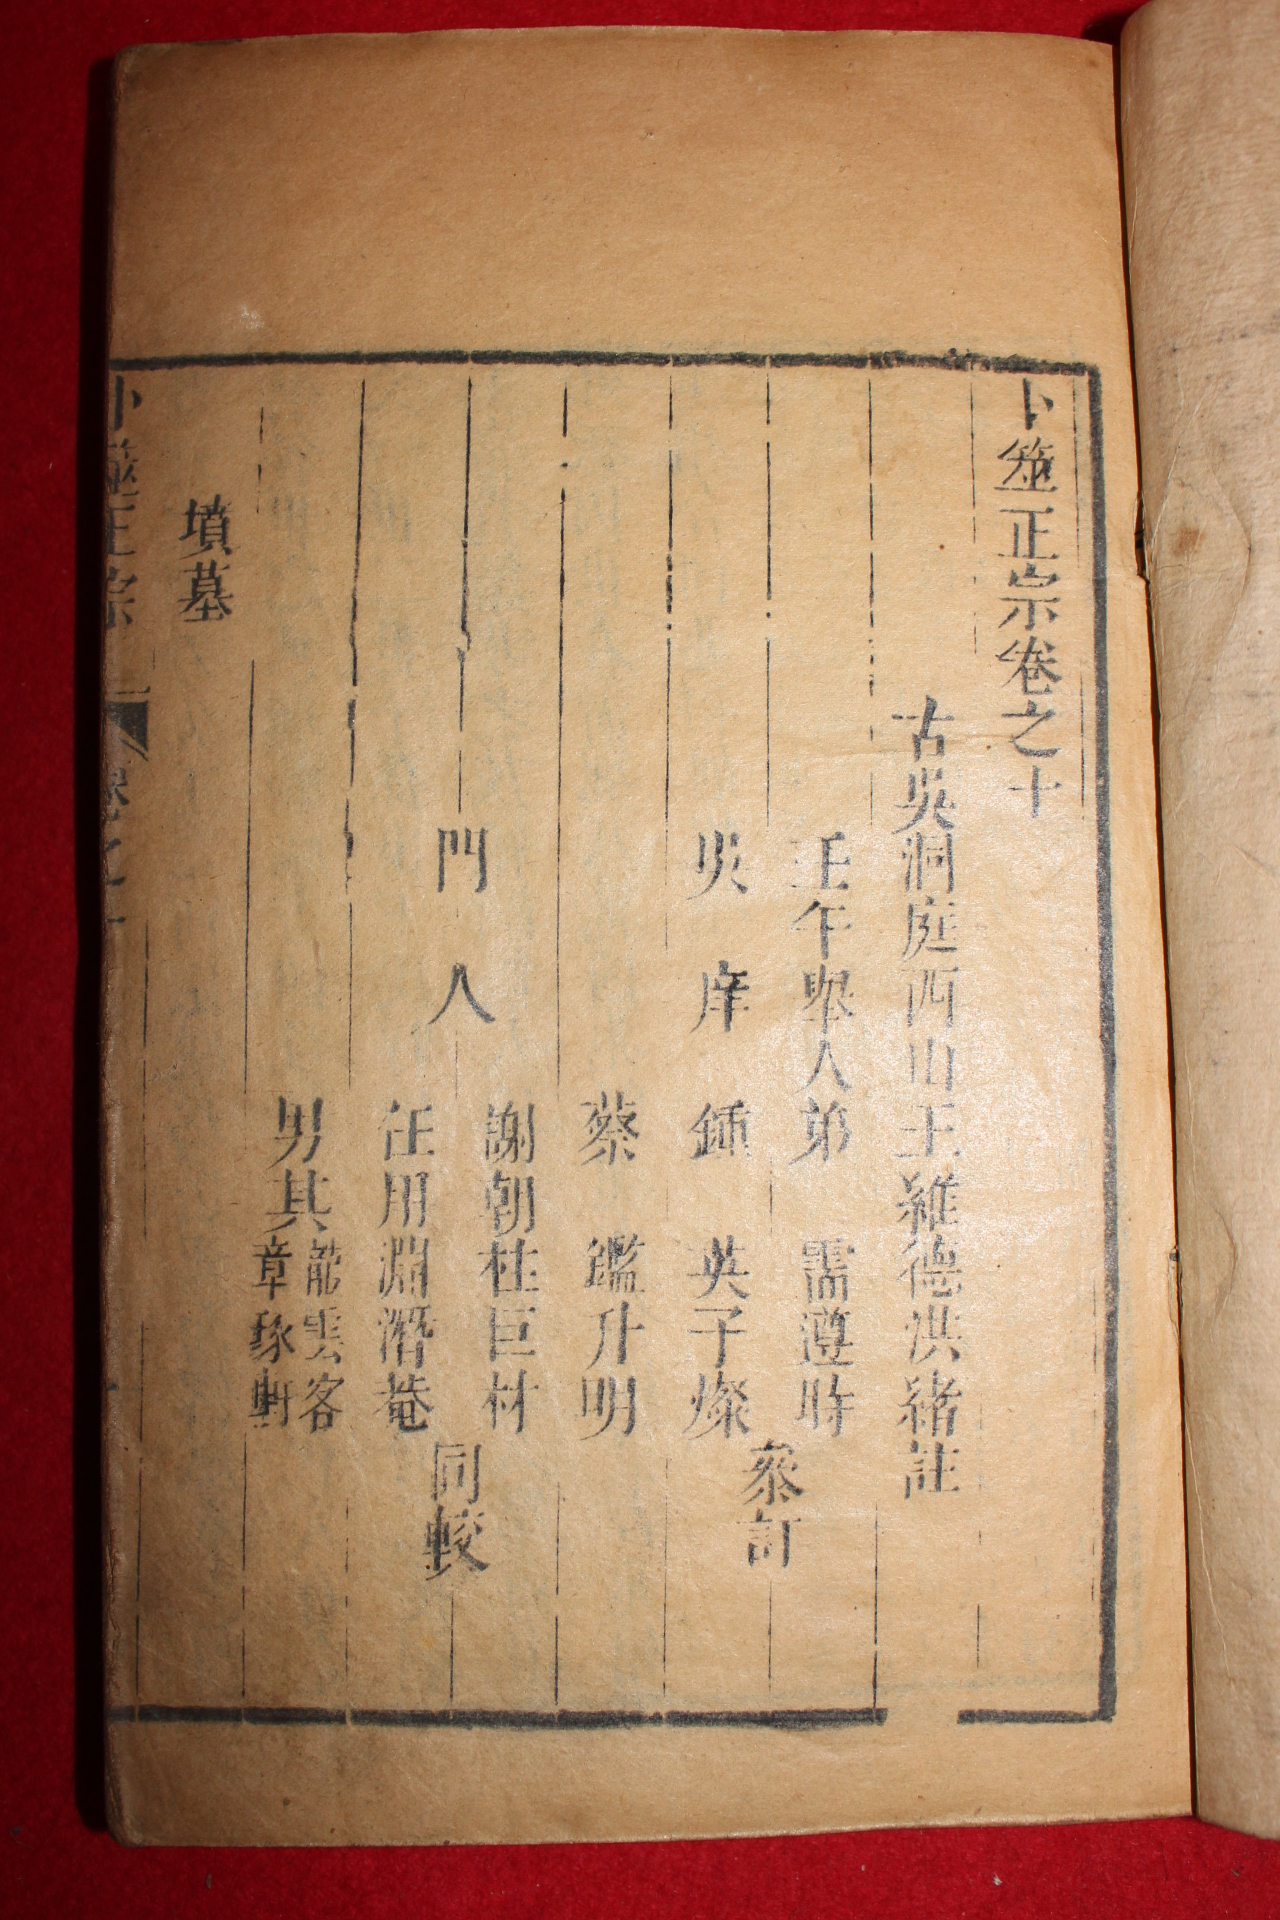 卜筮正宗卷之十
古吳洞庭西山王維德洪緒註
壬午舉人弟 需遵時
吳 庠 鍾 英子燦
參訂
蔡 鑑升明
門 人
謝朝柱巨材
汪用淵潛菴
同較
男其龍雲客
章琢軒
墳墓
卜筮正宗 卷之十